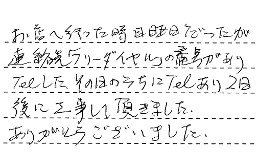 お店へ行った時日曜日だったが
連絡先「フリーダイヤル」の番号があり
Telした。その日のうちにTelあり2日
後に工事して頂きました。
ありがとうございました。